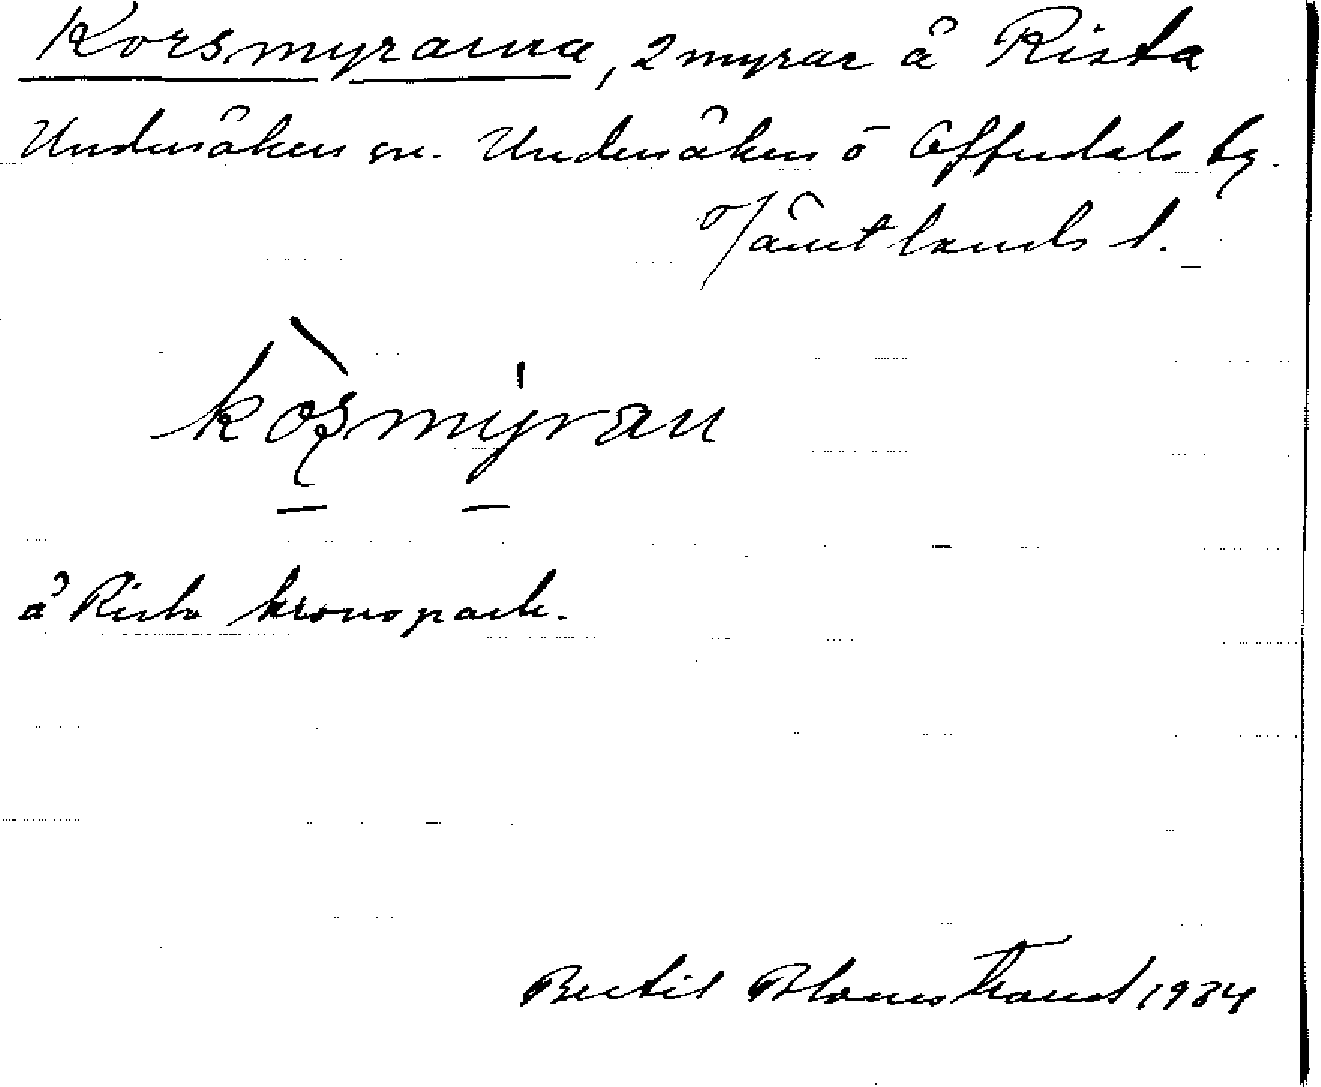 Korsmyrarna, 2 myrar å Rista
Undersåkers sn. Undersåkers o Offerdals tg.
Jämtlands l.
kòșmyran
å Rista kronopark.
Bertil Blomstrand 1934